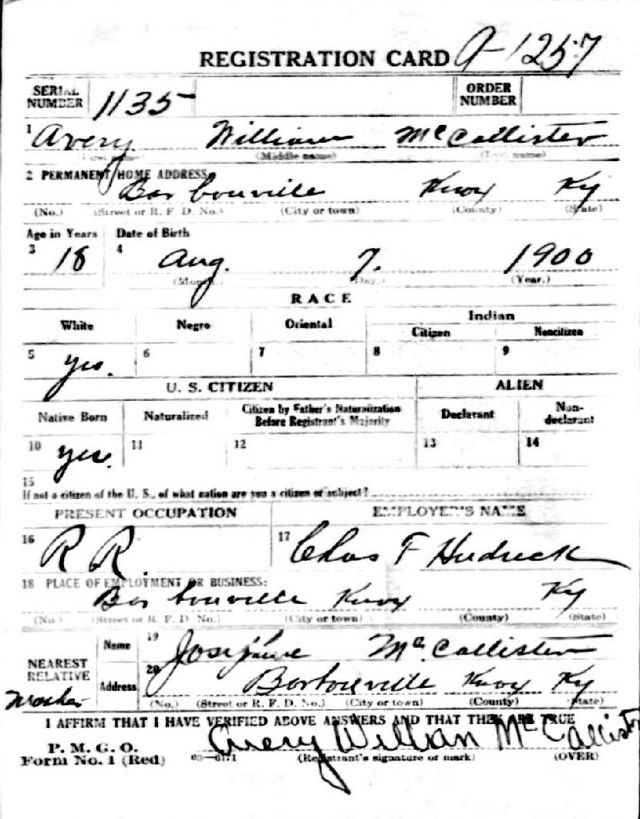 REGISTRATION CARD A-1257
SERIAL NUMBER 1135 ORDER NUMBER
1 Avery William McCallister
(First name) (Middle name) (Last name)
2 PERMANENT HOME ADDRESS:
Barbourville Knox Ky
(No.) (Street or R. F. D. No.) (City or town) (County) (State)
Age in Years Date of Birth
3 18 4 Aug. 7. 1900
(Month.) (Day.) (Year.)
RACE
White Negro Oriental Indian
Citizen Noncitizen
5 yes. 6 7 8 9
U. S. CITIZEN ALIEN
Native Born Naturalized Citizen by Father's Naturalization Before Registrant's Majority Declarant Non-declarant
10 yes. 11 12 13 14
15
If not a citizen of the U. S., of what nation are you a citizen or subject?
PRESENT OCCUPATION EMPLOYER'S NAME
16 R R. 17 Chas F
18 PLACE OF EMPLOYMENT OR BUSINESS:
Barbourville Knox Ky
(No.) (Street or R. F. D. No.) (City or town) (County) (State)
NEAREST RELATIVE Name 19 Josephine McCallister
Mother Address 20 Barbourville Knox Ky
(No.) (Street or R. F. D. No.) (City or town) (County) (State)
I AFFIRM THAT I HAVE VERIFIED ABOVE ANSWERS AND THAT THEY ARE TRUE
P. M. G. O.
Form No. 1 (Red) 03-6171 Avery William McCallister
(Registrant's signature or mark) (OVER)